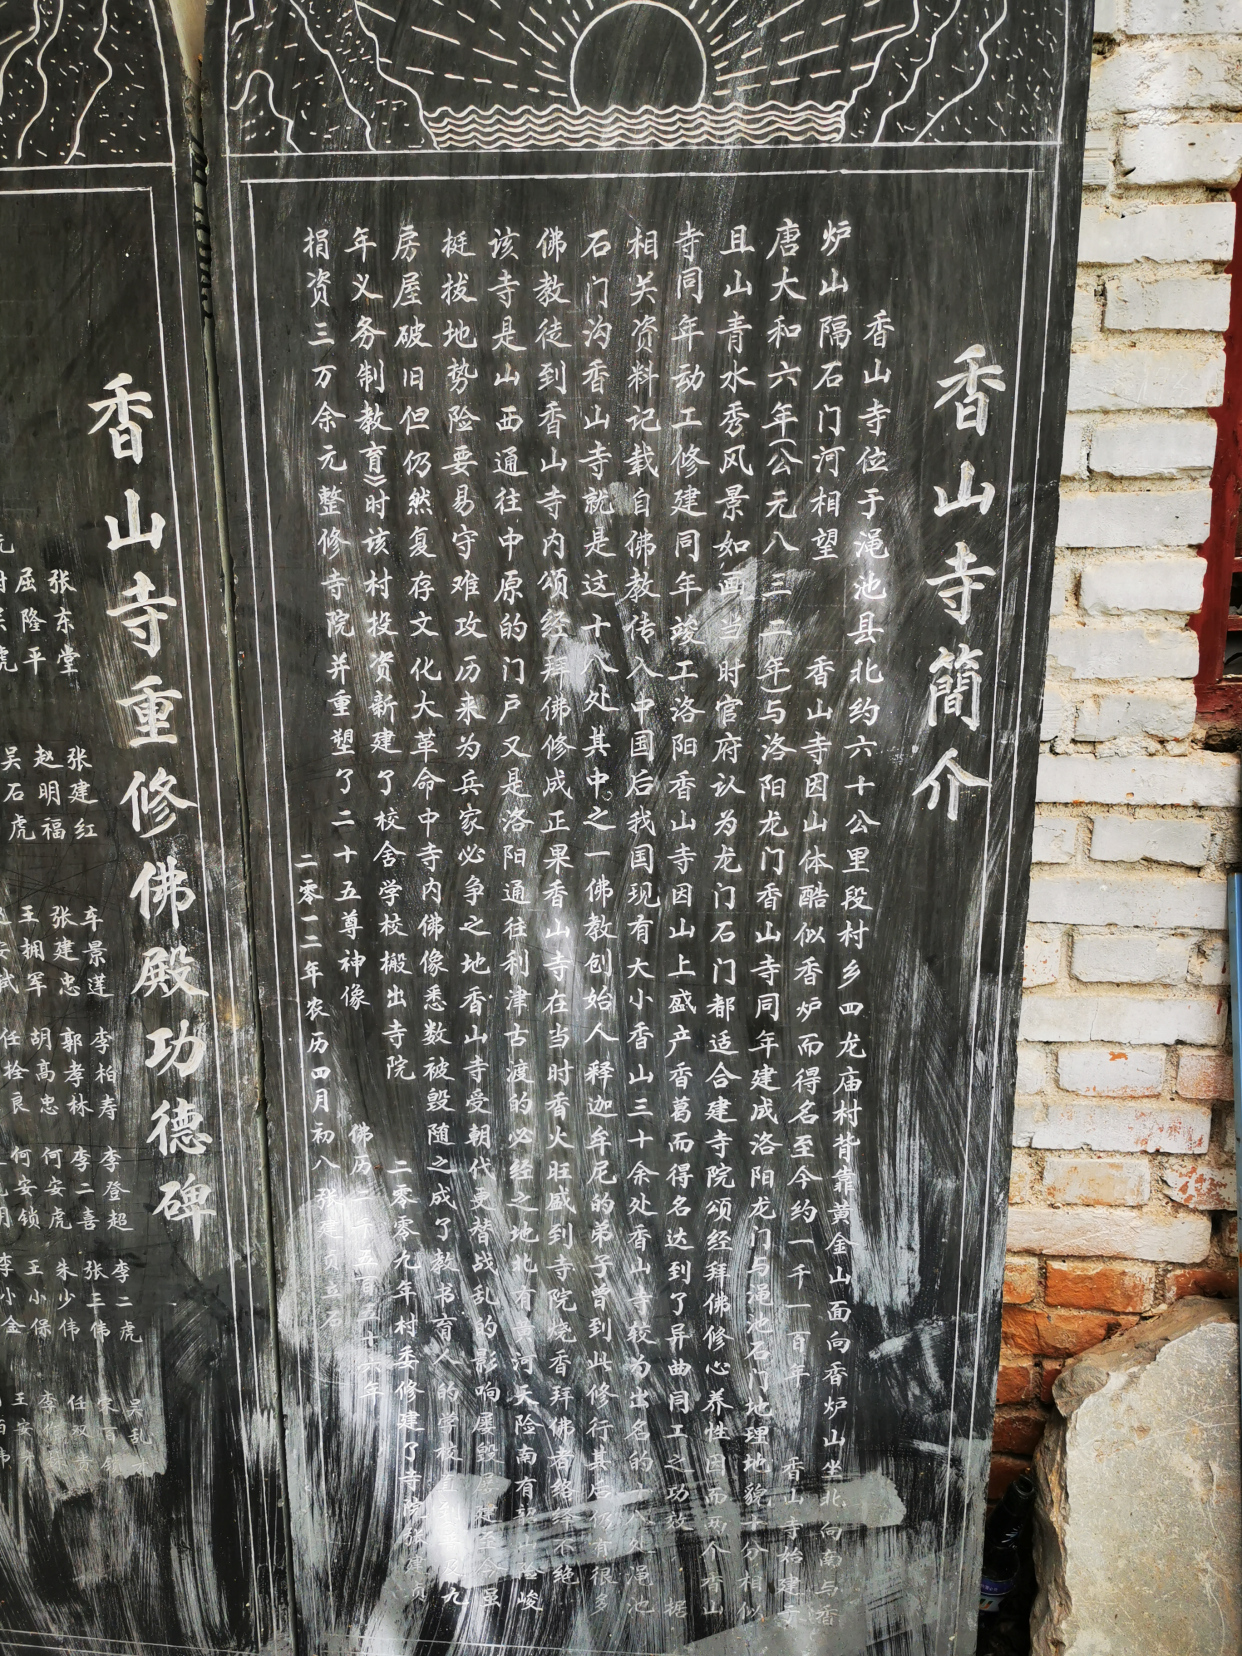 香山寺簡介
香山寺位于渑池县北约六十公里段村乡四龙庙村背靠黄金山面向香炉山坐北向南与香
炉山隔石门河相望 香山寺因山体酷似香炉而得名至今约一千一百年 香山寺始建于
唐大和六年(公元八三二年)与洛阳龙门香山寺同年建成洛阳龙门与渑池石门地理地貌十分相似
且山青水秀风景如画当时官府认为龙门石门都适合建寺院颂经拜佛修心养性因而两个香山
寺同年动工修建同年竣工洛阳香山寺因山上盛产香葛而得名达到了异曲同工之功效 据
相关资料记载自佛教传入中国后我国现有大小香山三十余处香山寺较为出名的十八处渑池
石门沟香山寺就是这十八处其中之一佛教创始人释迦牟尼的弟子曾到此修行其后仍有很多
佛教徒到香山寺内颂经拜佛修成正果香山寺在当时香火旺盛到寺院烧香拜佛者络绎不绝
该寺是山西通往中原的门户又是洛阳通往利津古渡的必经之地北有黄河天险南有韶山险峻
挺拔地势险要易守难攻历来为兵家必争之地香山寺受朝代更替战乱的影响屡毁屡建至今虽
房屋破旧但仍然复存文化大革命中寺内佛像悉数被毁随之成了教书育人的学校 九
年义务制教育》时该村投资新建了校舍学校搬出寺院 二零零九年村委修建了寺院张
捐资三万余元整修寺院并重塑了二十五尊神像 佛历二千五百五十 年
二零一二年农历四月初八 张建 立石
香山寺重修佛殿功德碑
张东堂 张建红 车景莲 李柏寿 李登超 李二虎 吴乱
屈隆平 赵明福 张建忠 郭孝林 李二喜 张三伟
吴石虎 王拥军 胡高忠 何安虎 朱少伟
任拴良 何安锁 王小保
李小金 王安